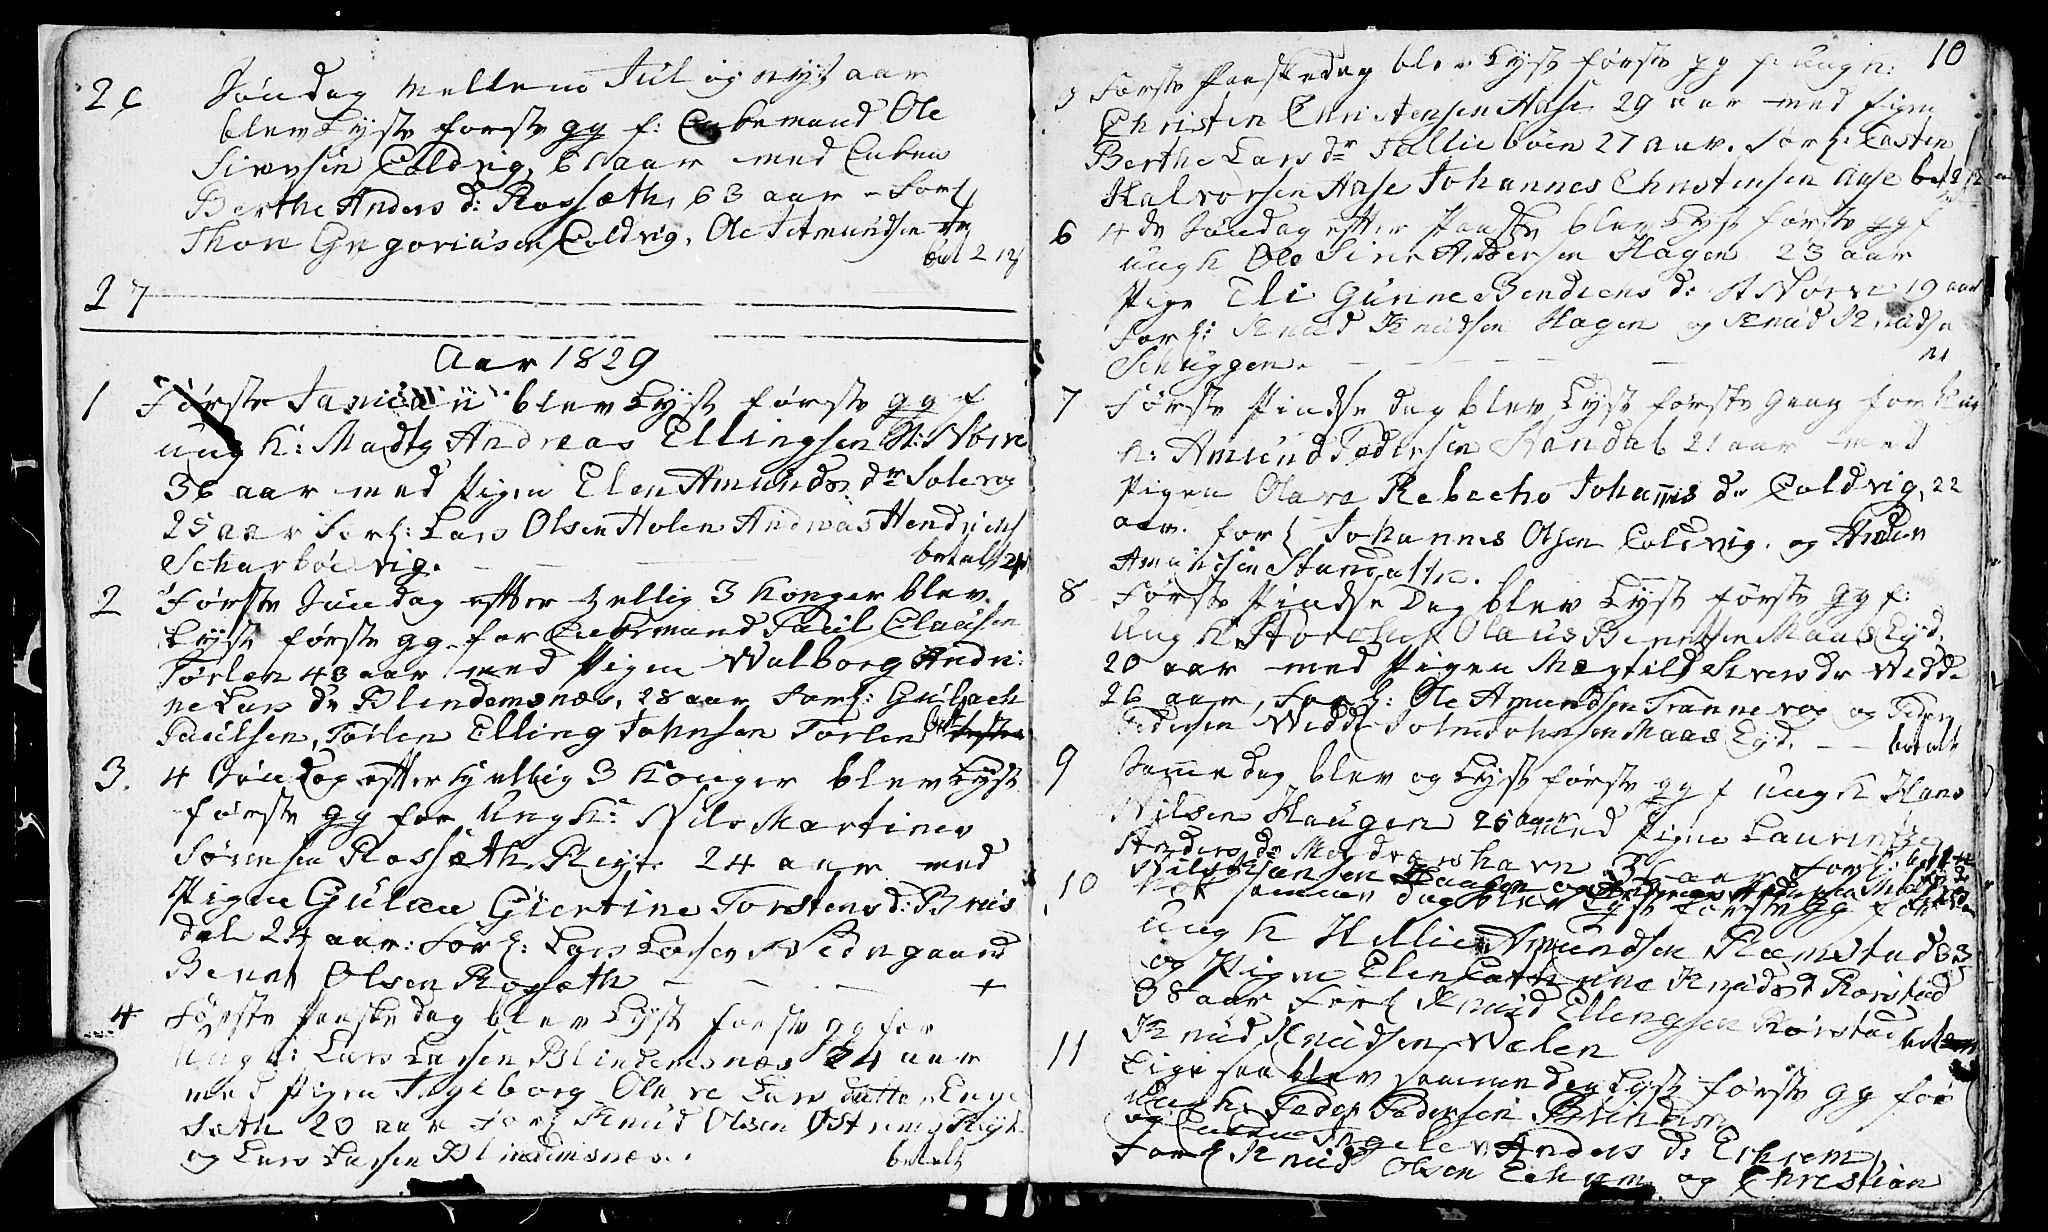 26 Søndag mellem Jul og nyt aar
blev Lyst første gg f: Enkemand Ole
Sivesen Coldvig, 61 aar med Enken
Berthe Anders d: Rossæth, 63 aar - Forl
Thore Gregoriusen Coldvig, Ole Amundsen
betl 2
27
Aar 1829
1 Første Januarii blev Lyst første gg f
ung K: Madtz Andreas Ellingsen St: Nørve
36 aar med Pigen Elen Amunds dr Solevog
25 aar Forl: Lars Olsen Holen Andreas Hendrichs
Scharbøevig. betalt
2 Første Søndag efter hellig 3 Konger blev
Lyst første gg for Enkemand Paul Clausen
Tørlen 43 aar med Pigen Walborg Andri:
ne Lars dr Blindemsnæs, 28 aar Forl: Gulach
Paulsen, Tørlen Elling Johnsen Tørlen
3. 4 Søndag efter hellig 3 Konger blev Lyst
første gg for Ung K: Nils Martinus
Sørensen Rossæth Røgt: 24 aar med
Pigen Gulæa Giertine Torstens d: Brus
dal 24 aar: Forl: Lars Larsen Nedregaard
Bernt Olsen Rossæth - - - +
4 Første Paaskedag blev Lyst første gg for
Ung K: Lars Larsen Blindemsnæs 24 aar
med Pigen Ingeborg Olave Lars datter Enge
sæth 20 aar Forl Knud Olsen Østrem
og Lars Larsen Blindemsnæs. betalt
10
5 Første Paaskedag blev Lyst første gg f: Ung K:
Christen Christensen Aase 29 aar med Pigen
Berthe Lars dr Talliebøen 27 aar. Forl: Casten
Halvorsen Aase Johannes Christensen Aase bet
6 4de Søndag efter Paaske blev Lyst første gg f
ung K Ole Siver Andersen Hagen 23 aar
Pige Eli Gunne Bendichs d: St Nørve 19 aar
Forl: Knud Knudsen Hagen og Knud Knudsen
Schuggen.
7 Første Pindse dag blev Lyst første Gang for Ung
K: Amund Pedersen Standal 21 aar med
Pigen Olave Rebecha Johannis dr Coldvig, 22
aar. forl Johannes Olsen Coldvig. og Peder
Amundsen Standal
8 Første Pindse Dag blev Lyst første gg f:
Ung K Olaus Berntsen Maas Egd.
20 aar med Pigen Magtild Sivers dr Wedde
26 aar, Forl: Ole Amundsen Trannevog og Peder
Pedersen Wedde John Johnsen Maas Egd. - - betalt
9 Samme dag blev og Lyst første gg f ung K Hans
Nilsen Haugen 25 aar med Pigen Laurentze
Anders dr Meydrershavn 36 aar Forl:
Nils Hansen Haugen og
10 samme dag blev Lyst første gg for
Ung K Hellie Amundsen Remstad 33
og Pigen Elen Cathrine Knuds d Rørstad
38 aar Forl Knud Ellingsen Rørstad
Knud Knudsen Walen
11 Lige saa blev samme dag Lyst første gg for
Ung K Peder Pedersen Blindem
og Enken Ingelev Anders d: Echrem
Forl Knud Olsen Echrem og Christian